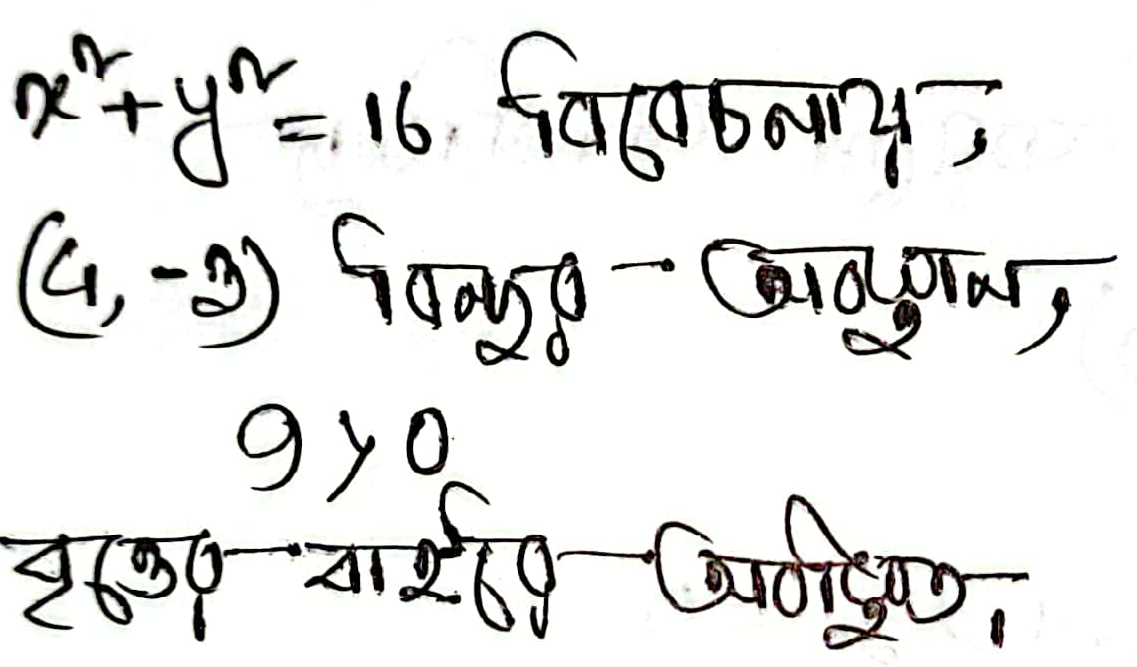 x²+y² = 16 বিবেচনায়,
(4, -3) বিন্দুর অবস্থান,
9 > 0
বৃত্তের বাইরে অবস্থিত।